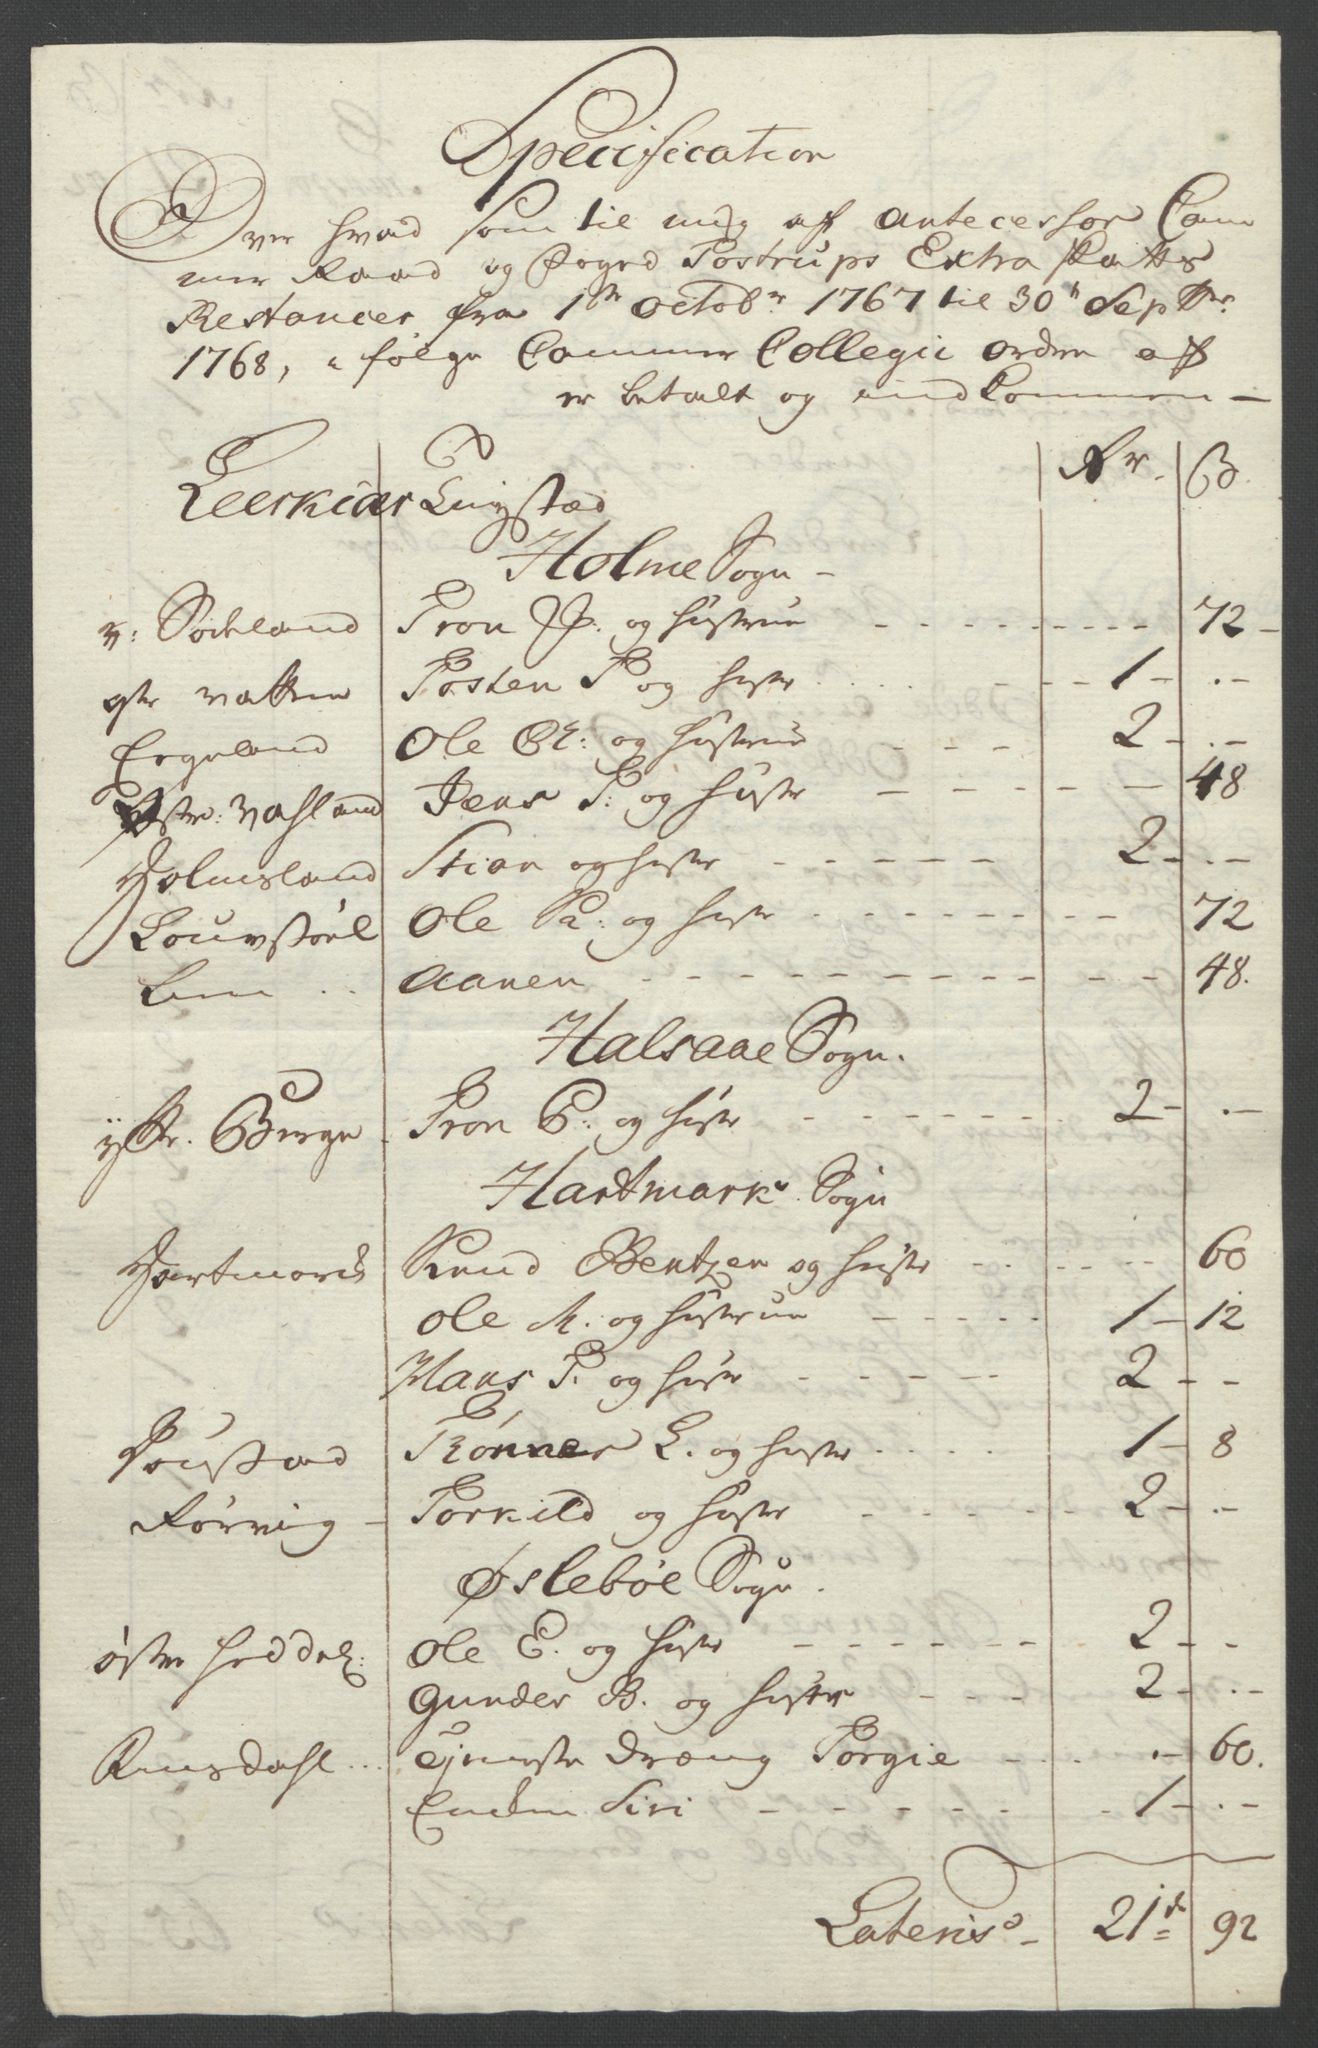 Specification
Over hvad som til mig af antecessor Cam
mer Raad og Foged Tostrups Extra Skatts
Restancer fra 1ste octobr 1767 til 30t Septbr.
1768, e følge Cammer Collegii ordre aff
er betalt og ind kommen —
Rr. ß.
Leerkiær Tingstæd
Holme Sogn —
y: Søeland Tron P. og Hustrue 72 —
Tosten T og hustr 1 — . —
Ergeland Ole : og Hustrue 2 — . —
Vahland Jens T: og hustr 48
Holmsland Stian og hustr 2 — . —
Ole og hustr 72
Lem Aanen 48.
Halsaae Sogn.
yttr. Berge Tron P. og hustr 2 — . —
Hartmarks Sogn
Hartmark Knud Bentzen og hustr 60
Ole A. og Hustrue 1 — 12
Hans T. og hustr 2 — —
Tønnes L. og hustr 1 — 8
Rørvig — Torkild og hustr 2 — . —
Øsleböe Sogn.
östre Heddel: Ole E. og hustr 2 — —
Gunder B. og hustr 2 — . —
Tjeneste Dræng Torgie . — 60.
Enken Siri 1 — . —
Lateris — 21 d 92